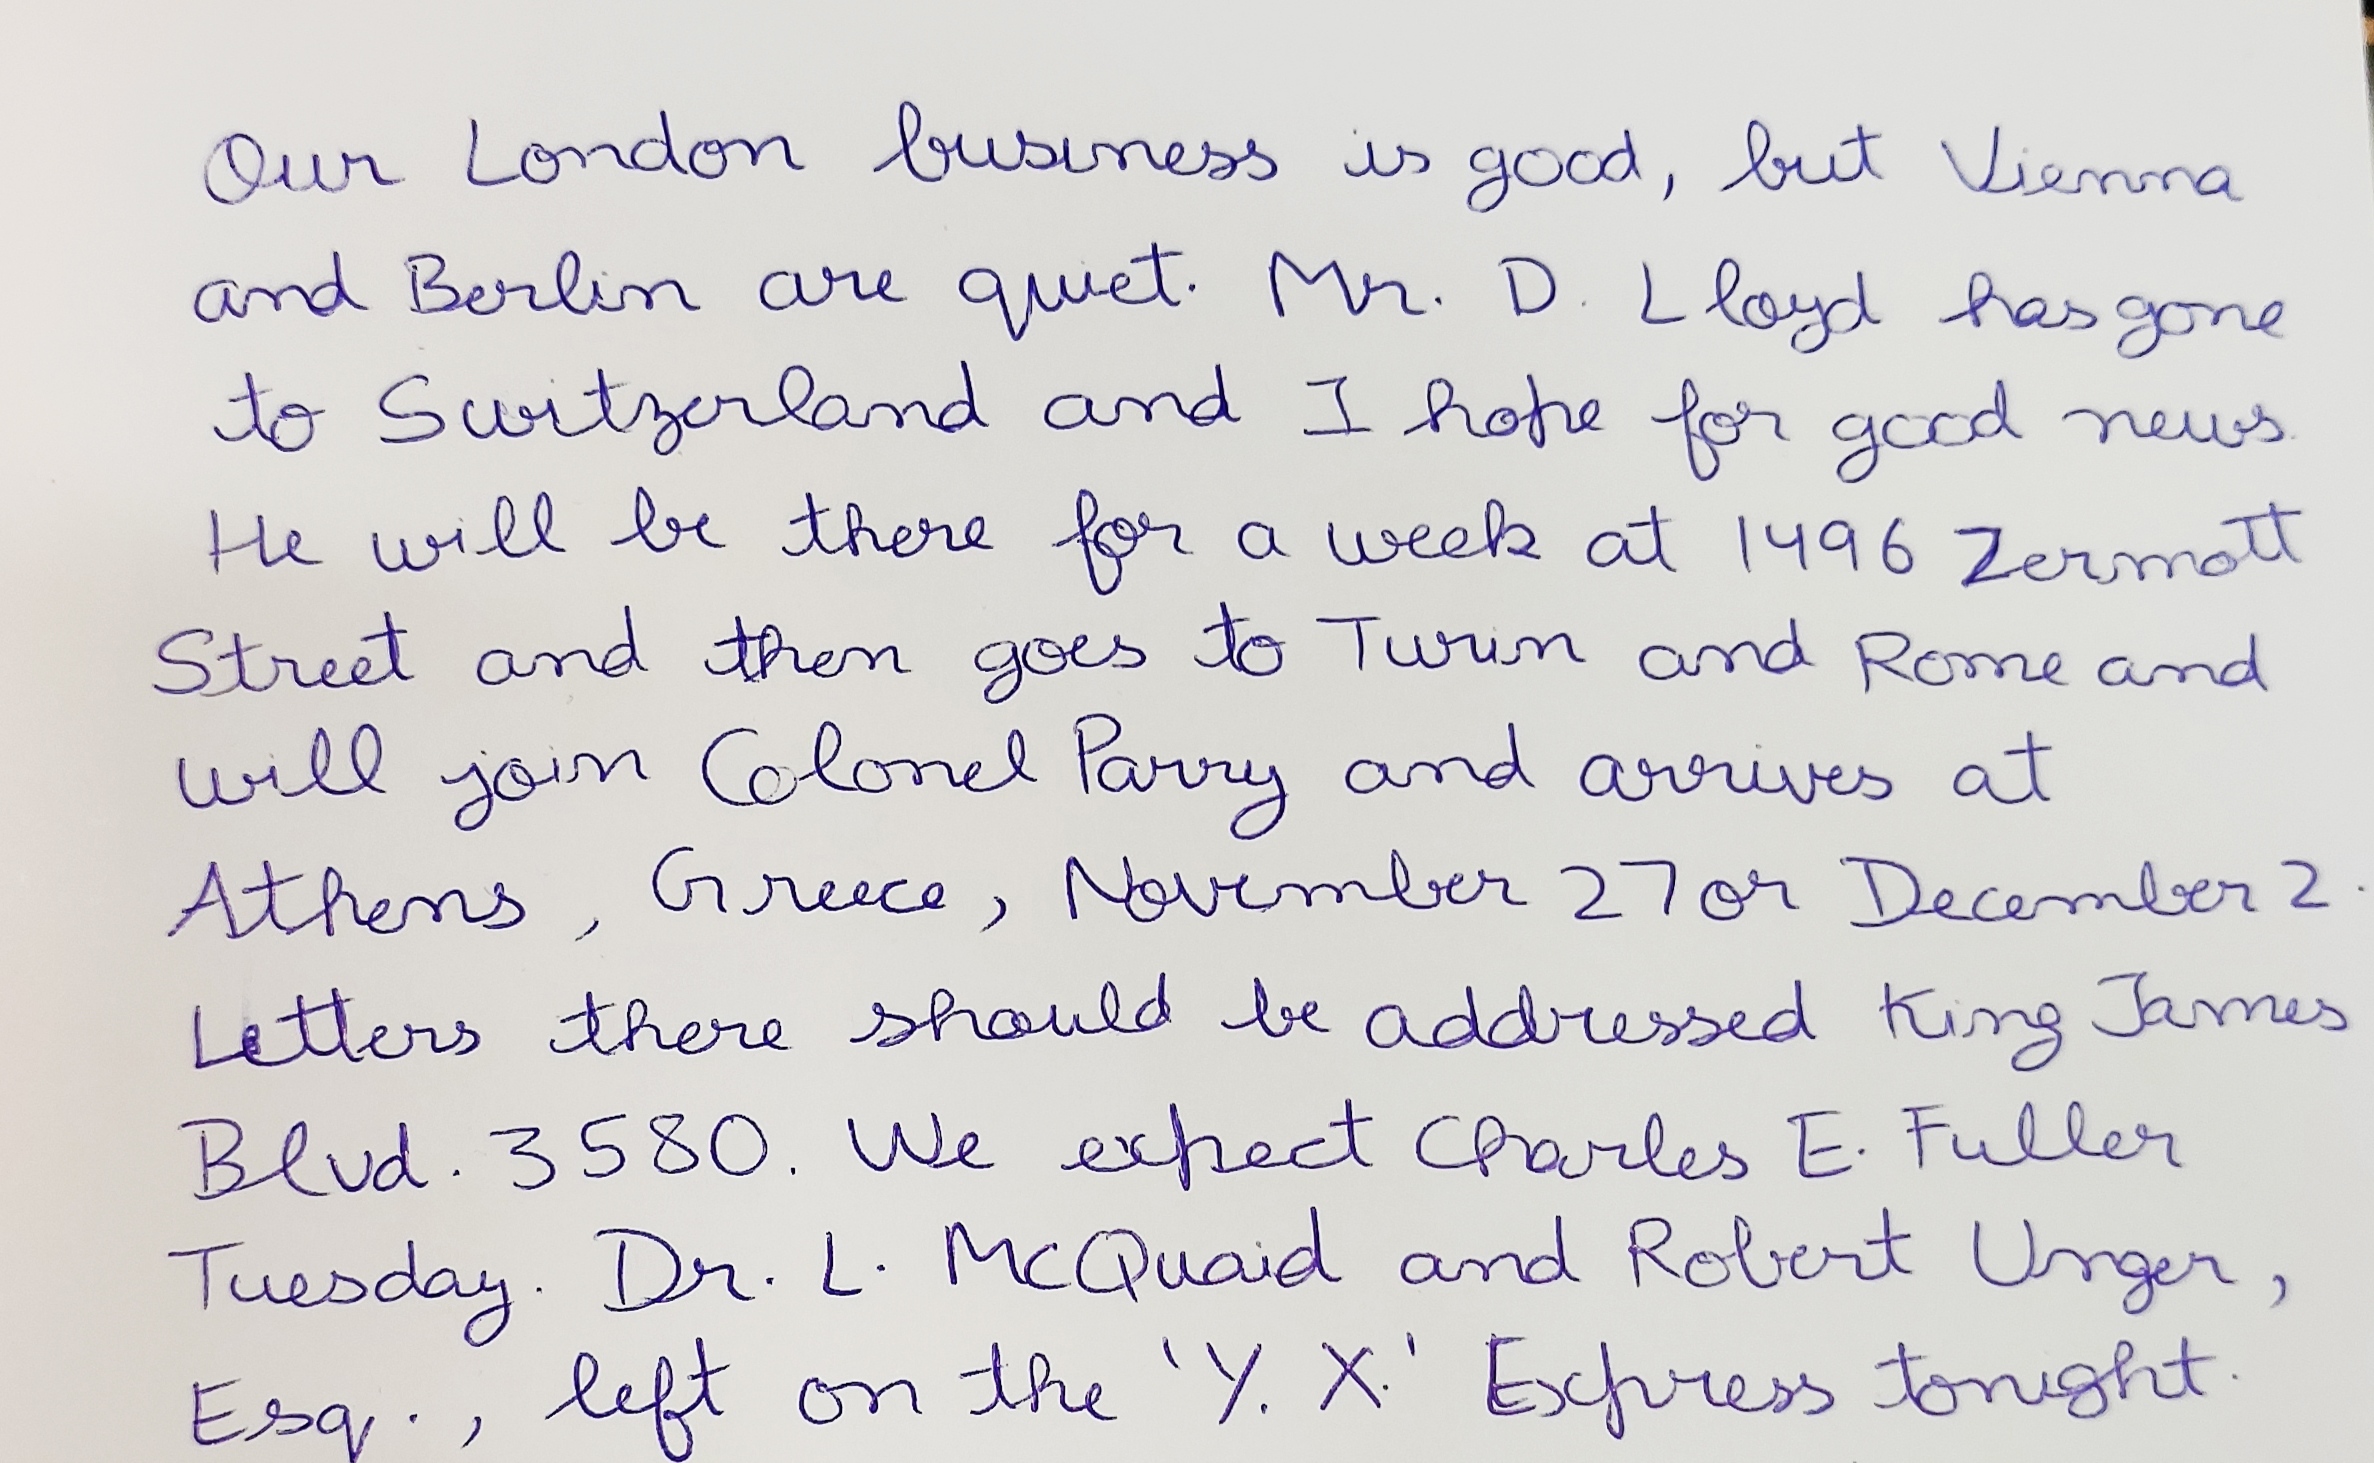 Our London business is good, but Vienna
and Berlin are quiet. Mr. D. Lloyd has gone
to Switzerland and I hope for good news.
He will be there for a week at 1496 Zermott
Street and then goes to Turin and Rome and
will join Colonel Parry and arrives at
Athens, Greece, November 27 or December 2.
Letters there should be addressed King James
Blvd. 3580. We expect Charles E. Fuller
Tuesday. Dr. L. McQuaid and Robert Unger,
Esq., left on the 'Y. X.' Express tonight.